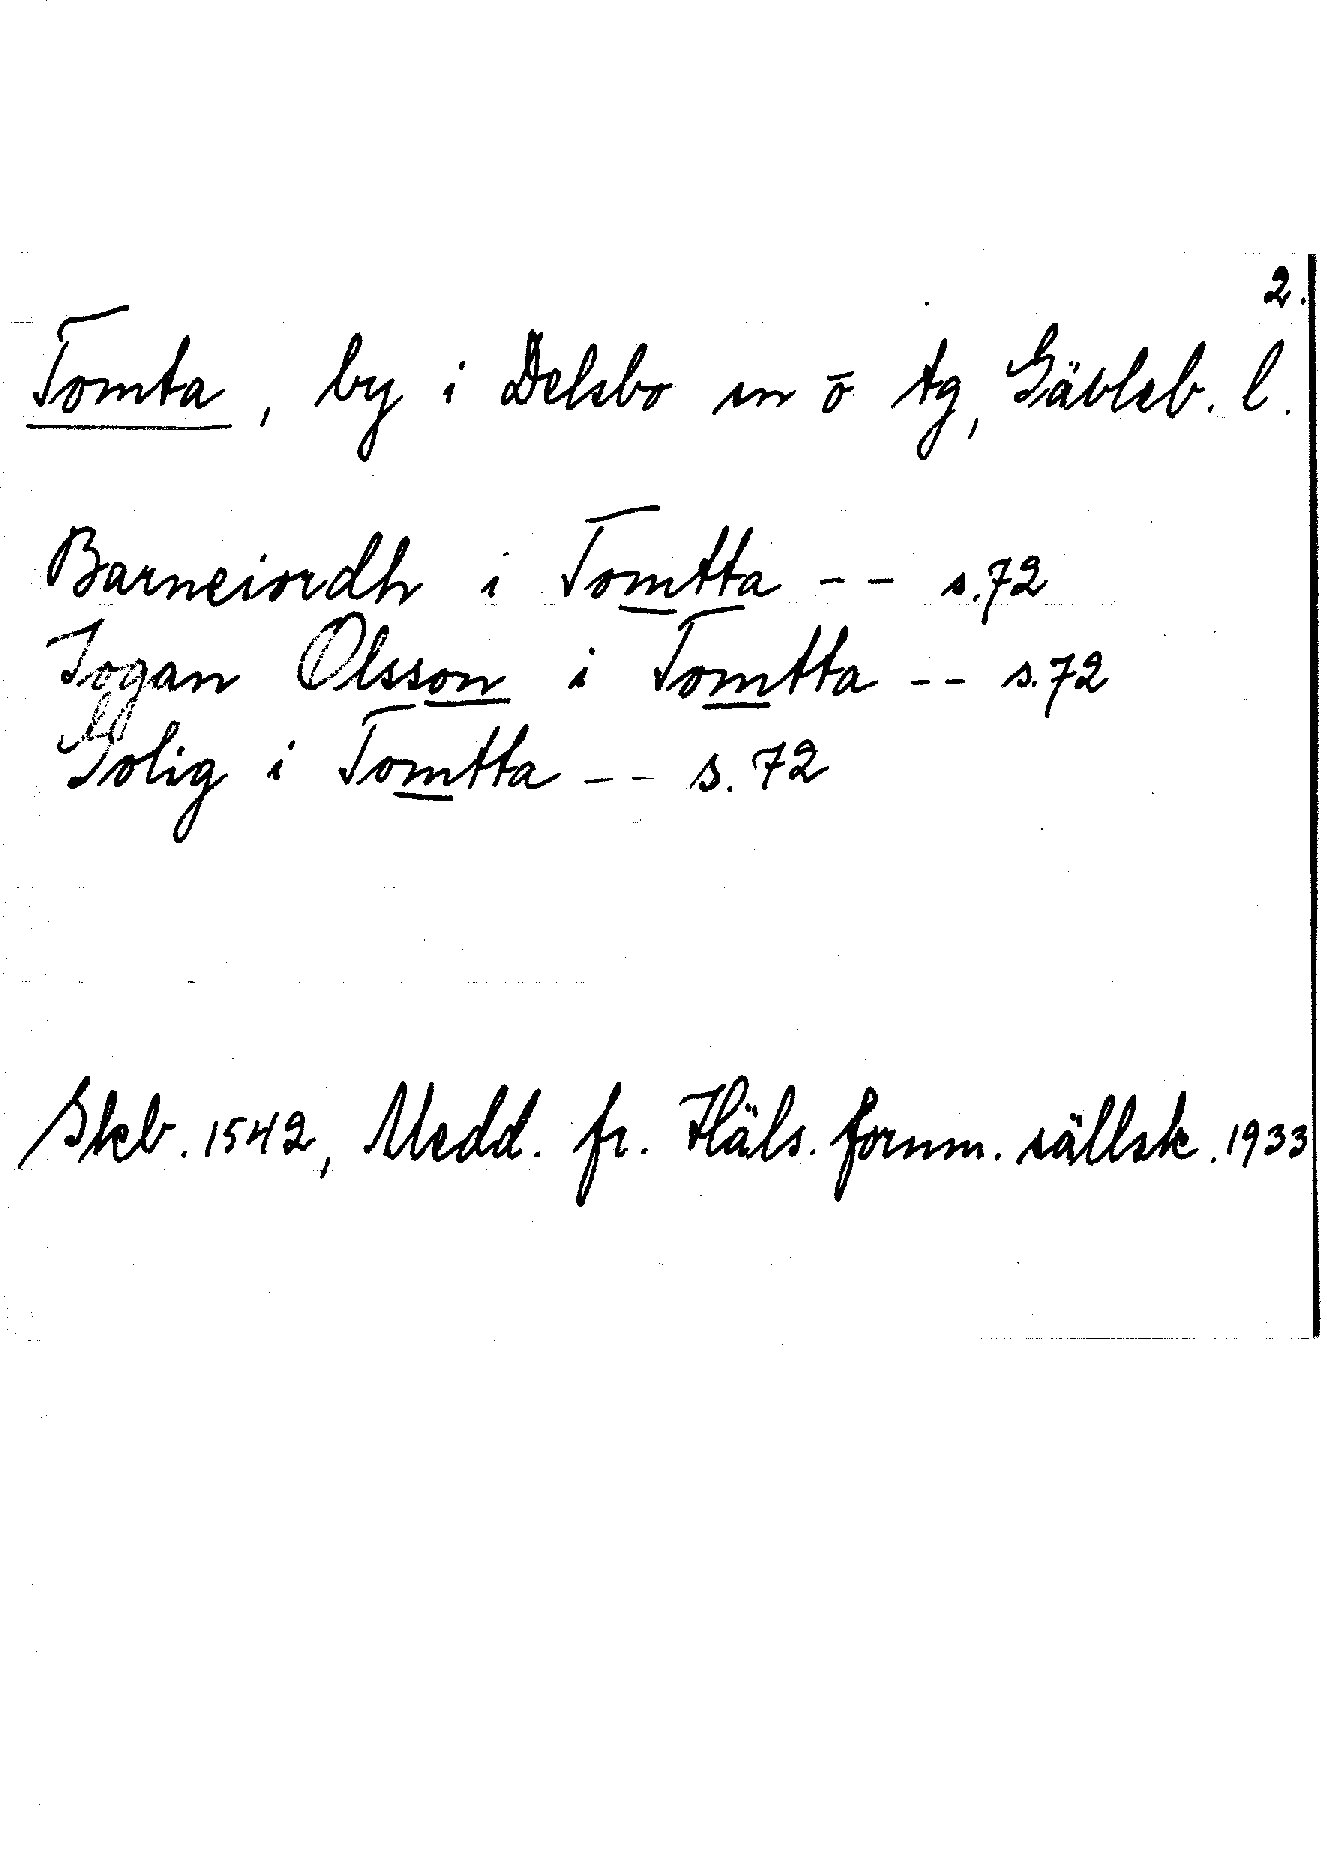 2.
Tomta, by i Delsbo sn o tg, Gävleb. l.
Barneiordh i Tomtta -- s.72
Jogan Olsson i Tomtta -- s.72
Solig i Tomtta -- s. 72
Skb. 1542, Medd. fr. Häls. fornm. sällsk. 1933